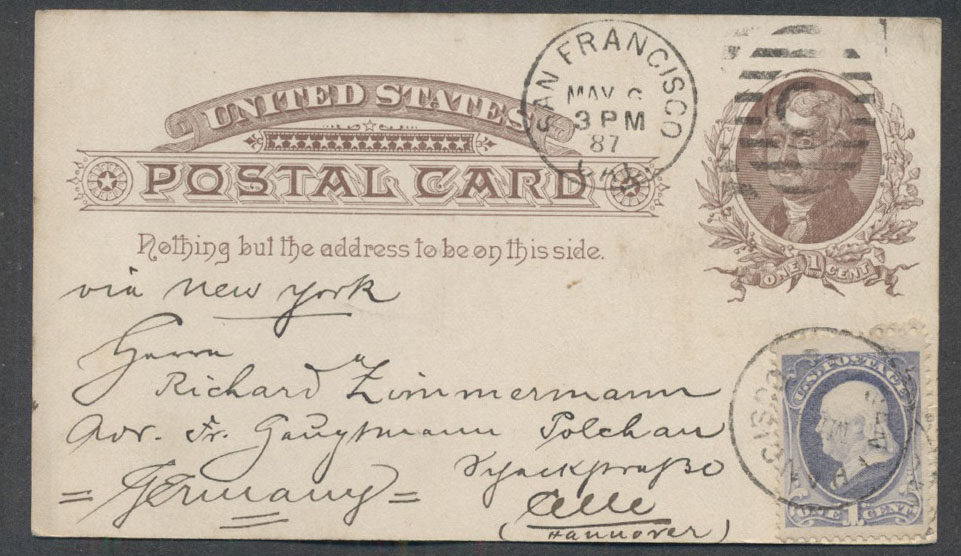 UNITED STATES
POSTAL CARD
Nothing but the address to be on this side.
SAN FRANCISCO
MAY
3 PM
87
CAL
C
ONE 1 CENT
via New York
Herrn
Richard Zimmermann
Adr. Fr. Hauptmann Polchau
= Germany =
Celle
(Hannover)
U.S. POSTAGE
ONE 1 CENT